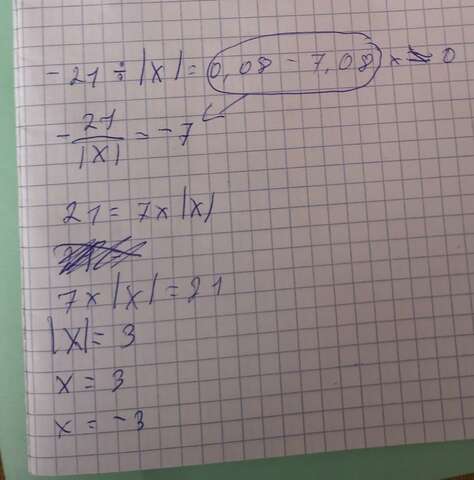 -21 ÷ |x| = 0,08 - 7,08 x ≠ 0
-21/|x| = -7
21 = 7x|x|
7x|x| = 21
|x| = 3
x = 3
x = -3